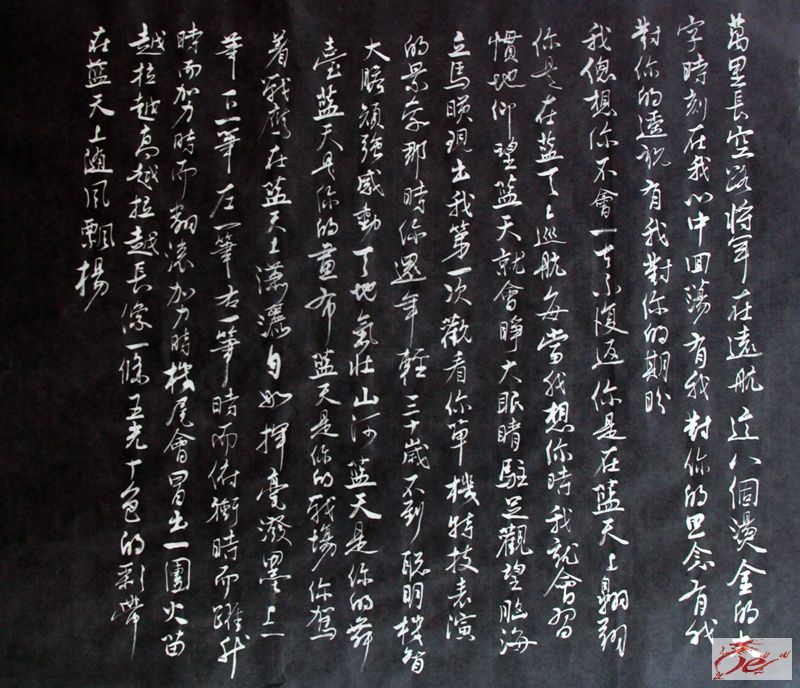 萬里長空路將軍在遠航這八個燙金的大
字時刻在我心中回蕩有我對你的思念有我
對你的遥祝有我對你的期盼
我總想你不會一去不復返你是在藍天上翱翔
你是在藍天上巡航每當我想你時我就會習
慣地仰望藍天就會睁大眼睛駐足觀望腦海
立馬映現出我第一次觀看你單機特技表演
的景象那時你還年輕三十歲不到聰明機智
大膽頑強感動了地氣壮山河藍天是你的舞
臺藍天是你的畫布藍天是你的戰場你駕
着戰鷹在藍天上潇灑自如揮毫潑墨上一
筆下一筆左一筆右一筆時而俯衝時而躍升
時而加力時而翻滚加力時機尾會冒出一團火苗
越拉越高越拉越長像一條五光十色的彩帶
在藍天上隨風飄揚